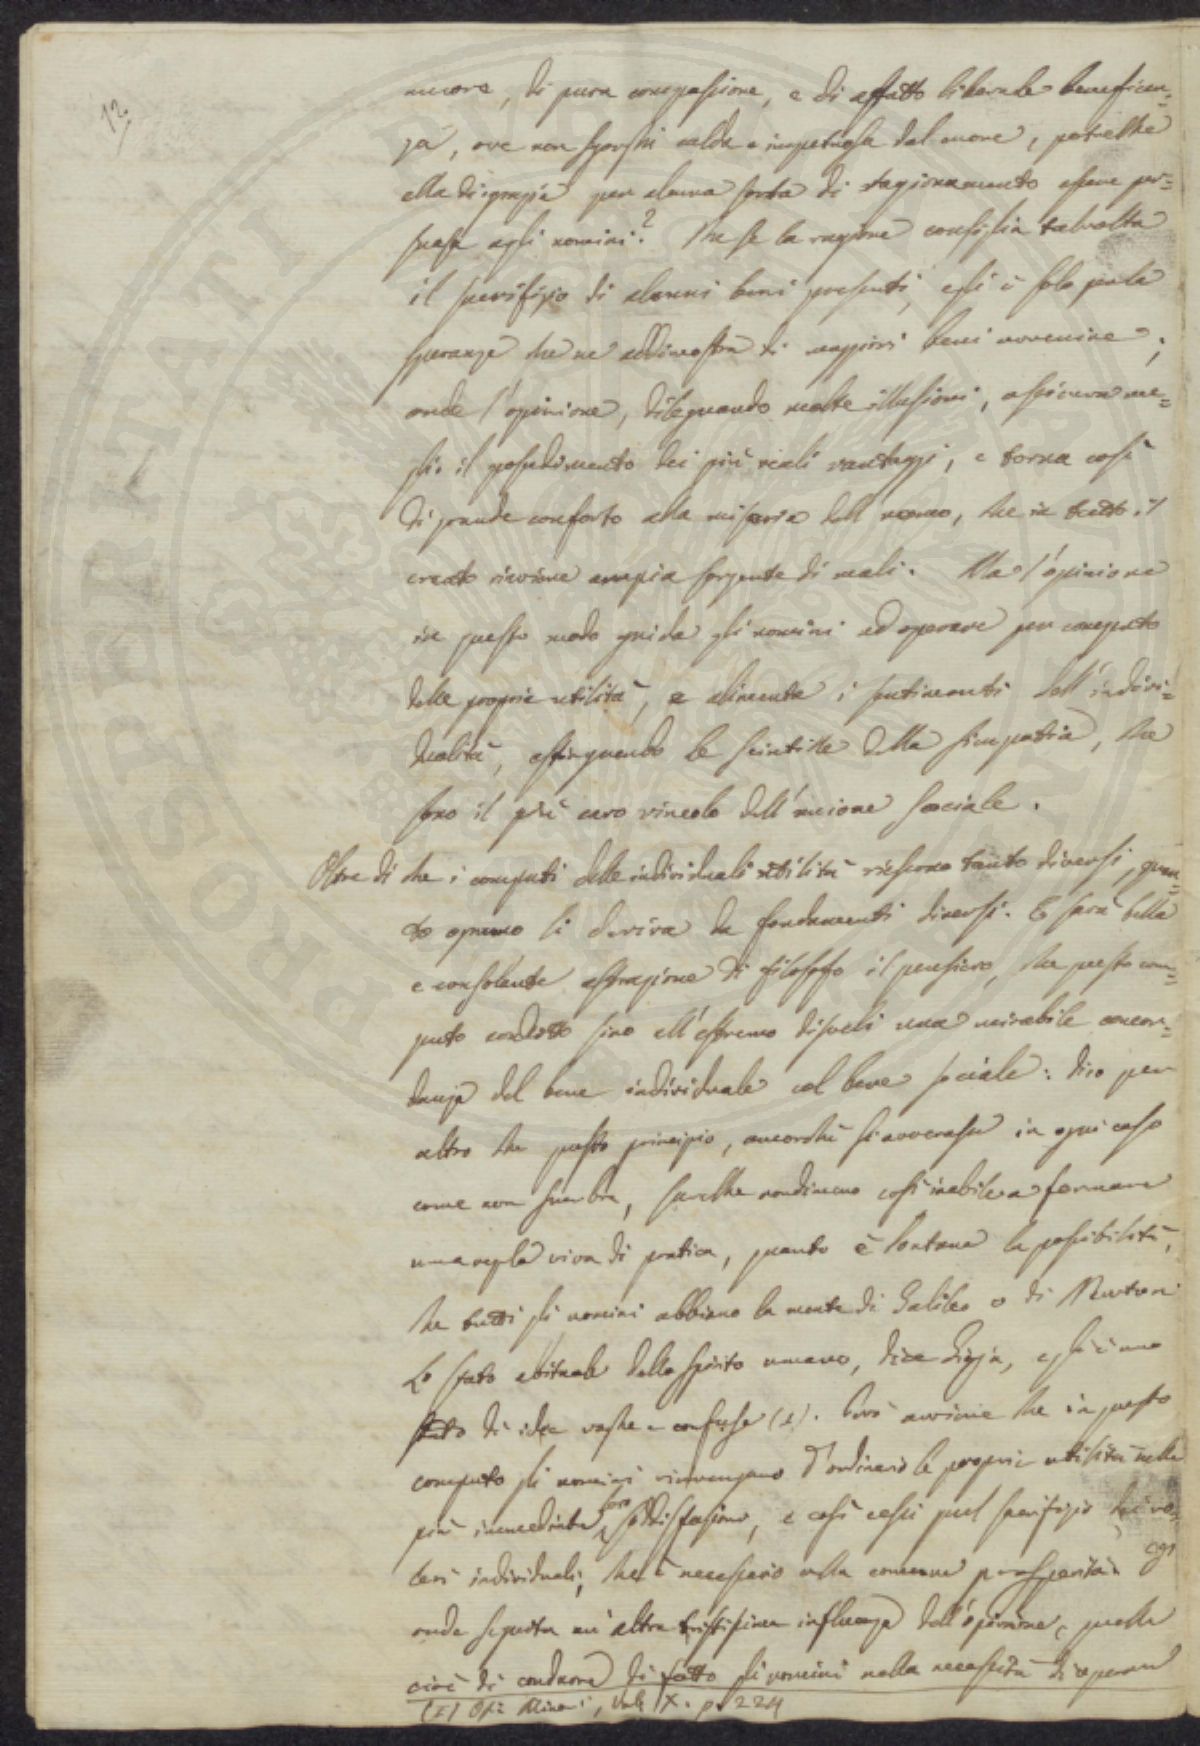 12
amore, di pura compassione, e di affatto liberale beneficen=
za, ove non sgorghi calda e impetuosa dal cuore, potrebbe
ella disgrazia per alcuna sorta di ragionamento essere per=
suasa agli uomini? Che se la ragione consiglia talvolta
il sacrifizio di alcuni beni presenti, egli è solo per la
speranza che ne addimostra di maggiori beni avvenire;
onde l'opinione, dileguando molte illusioni, assicura me=
glio il possedimento dei più reali vantaggi, e torna così
di grande conforto alla miseria dell'uomo, che in tutto il
creato rinviene ampia sorgente di mali. Ma l'opinione
in questo modo guida gli uomini ad operare per computo
delle proprie utilità, e alimenta i sentimenti dell'indivi=
dualità, estinguendo le scintille della simpatia, che
sono il più caro vincolo dell'unione sociale.
Oltre di che i computi delle individuali utilità riescono tanto diversi, quan=
to ognuno li deriva da fondamenti diversi. E sarà bella
e consolante astrazione di filosofo il pensiero, che questo com=
puto condotto sino all'estremo disveli una mirabile concor=
danza del bene individuale col bene sociale: dico per
altro che questo principio, ancorchè si avverasse in ogni caso
come non sembra, sarebbe nondimeno così inabile a formare
una regola viva di pratica, quanto è lontana la possibilità,
che tutti gli uomini abbiano la mente di Galileo o di Newton
Lo stato abituale dello spirito umano, dice Gioja, egli è uno
stato di idee vaghe e confuse (1). Però avviene che in questo
computo gli uomini rinvengano d'ordinario le proprie utilità nella
più immediata loro soddisfazione, e così cessi quel sacrifizio dei vo=
leri individuali, che è necessario alla comune prosperità.
onde seguita un'altra tristissima influenza dell'opinione, quella
cioè di condurre di fatto gli uomini nella necessità di operare
(1) Op: Minori, Vol: X. p. 224